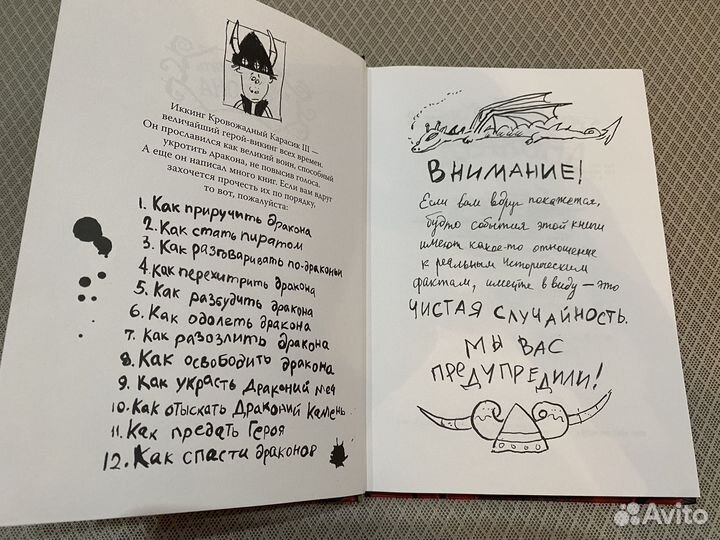 Иккинг Кровожадный Карасик III —
величайший герой-викинг всех времен.
Он прославился как великий воин, способный
укротить дракона, не повысив голоса.
А еще он написал много книг. Если вам вдруг
захочется прочесть их по порядку,
то вот, пожалуйста:
1. Как приручить дракона
2. Как стать пиратом
3. Как разговаривать по-драконьи
4. Как перехитрить дракона
5. Как разбудить дракона
6. Как одолеть дракона
7. Как разозлить дракона
8. Как освободить дракона
9. Как украсть Драконий меч
10. Как отыскать Драконий Камень
11. Как предать Героя
12. Как спасти драконов
ВНИМАНИЕ!
Если вам вдруг покажется,
будто события этой книги
имеют какое-то отношение
к реальным историческим
фактам, имейте в виду — это
ЧИСТАЯ СЛУЧАЙНОСТЬ.
МЫ ВАС
ПРЕДУПРЕДИЛИ!
Avito